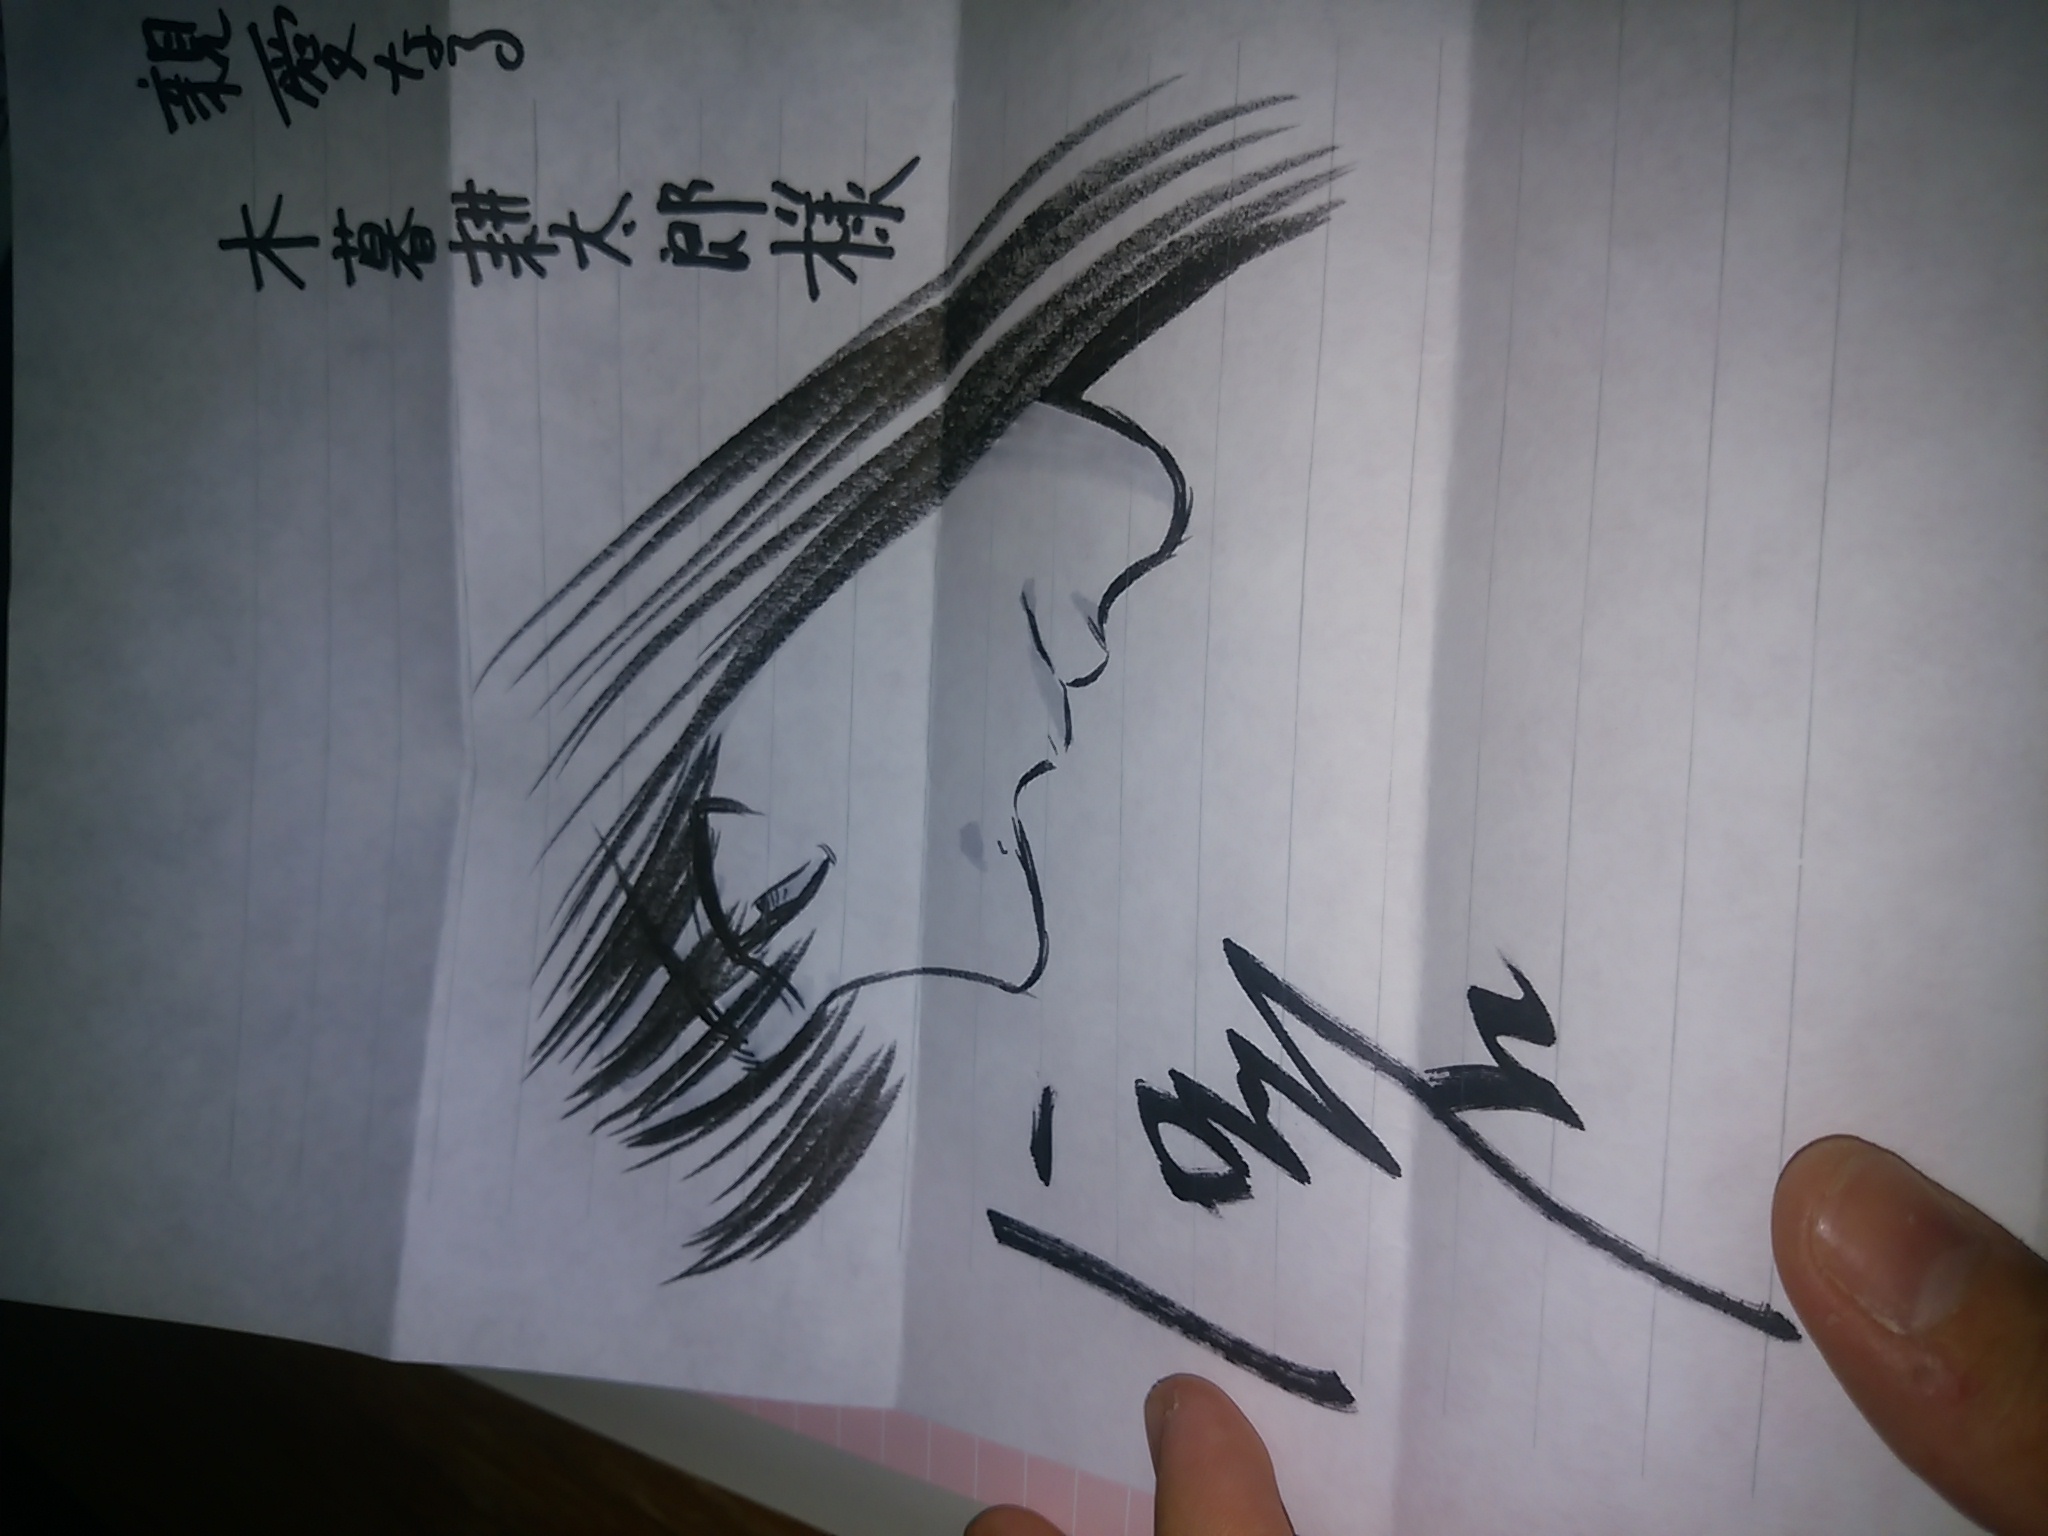 親愛なる
木暮耕太郎様